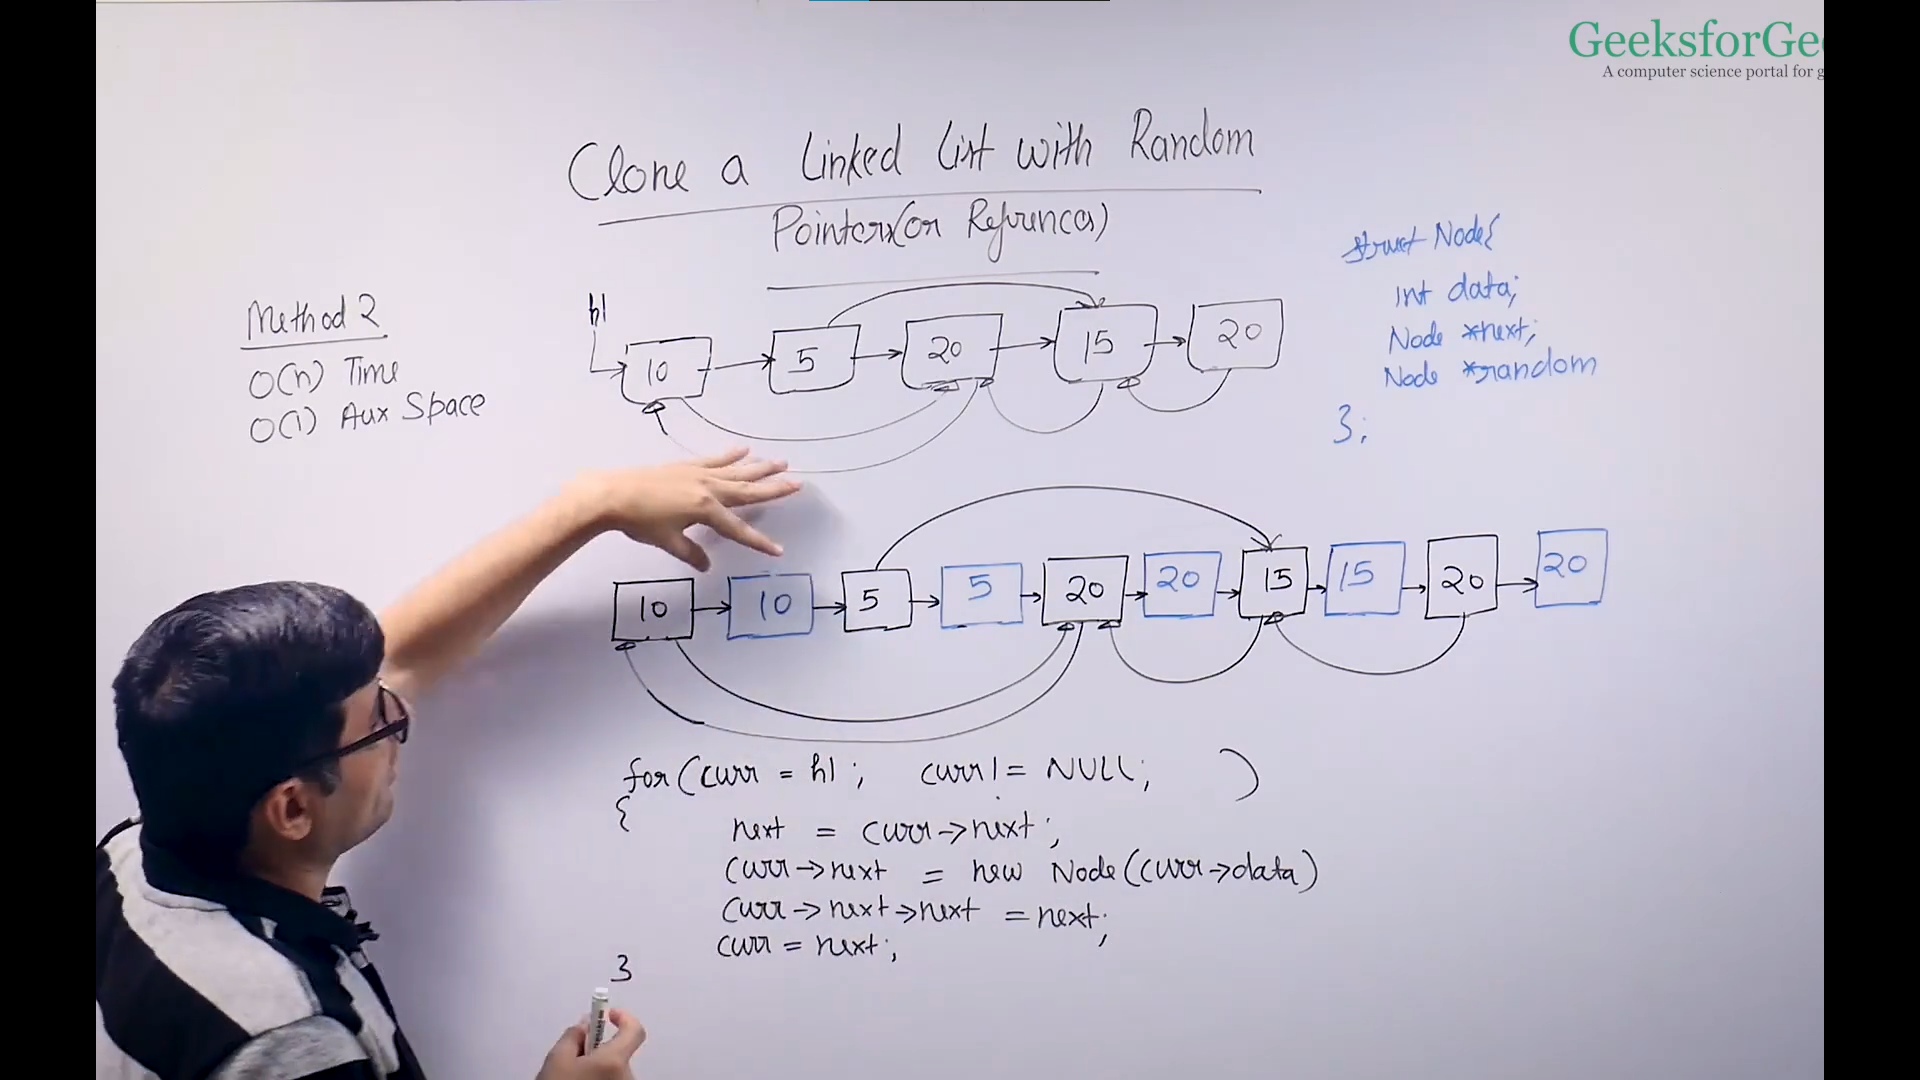 GeeksforGee
A computer science portal for g
Clone a Linked List with Random
Pointers(or Refrences)
Method 2
O(n) Time
O(1) Aux Space
struct Node{
int data;
Node *next;
Node *random
};
h1
10 5 20 15 20
10 10 5 5 20 20 15 15 20 20
for(curr = h1; curr != NULL; )
{
next = curr->next;
curr->next = new Node(curr->data)
curr->next->next = next;
curr = next;
}